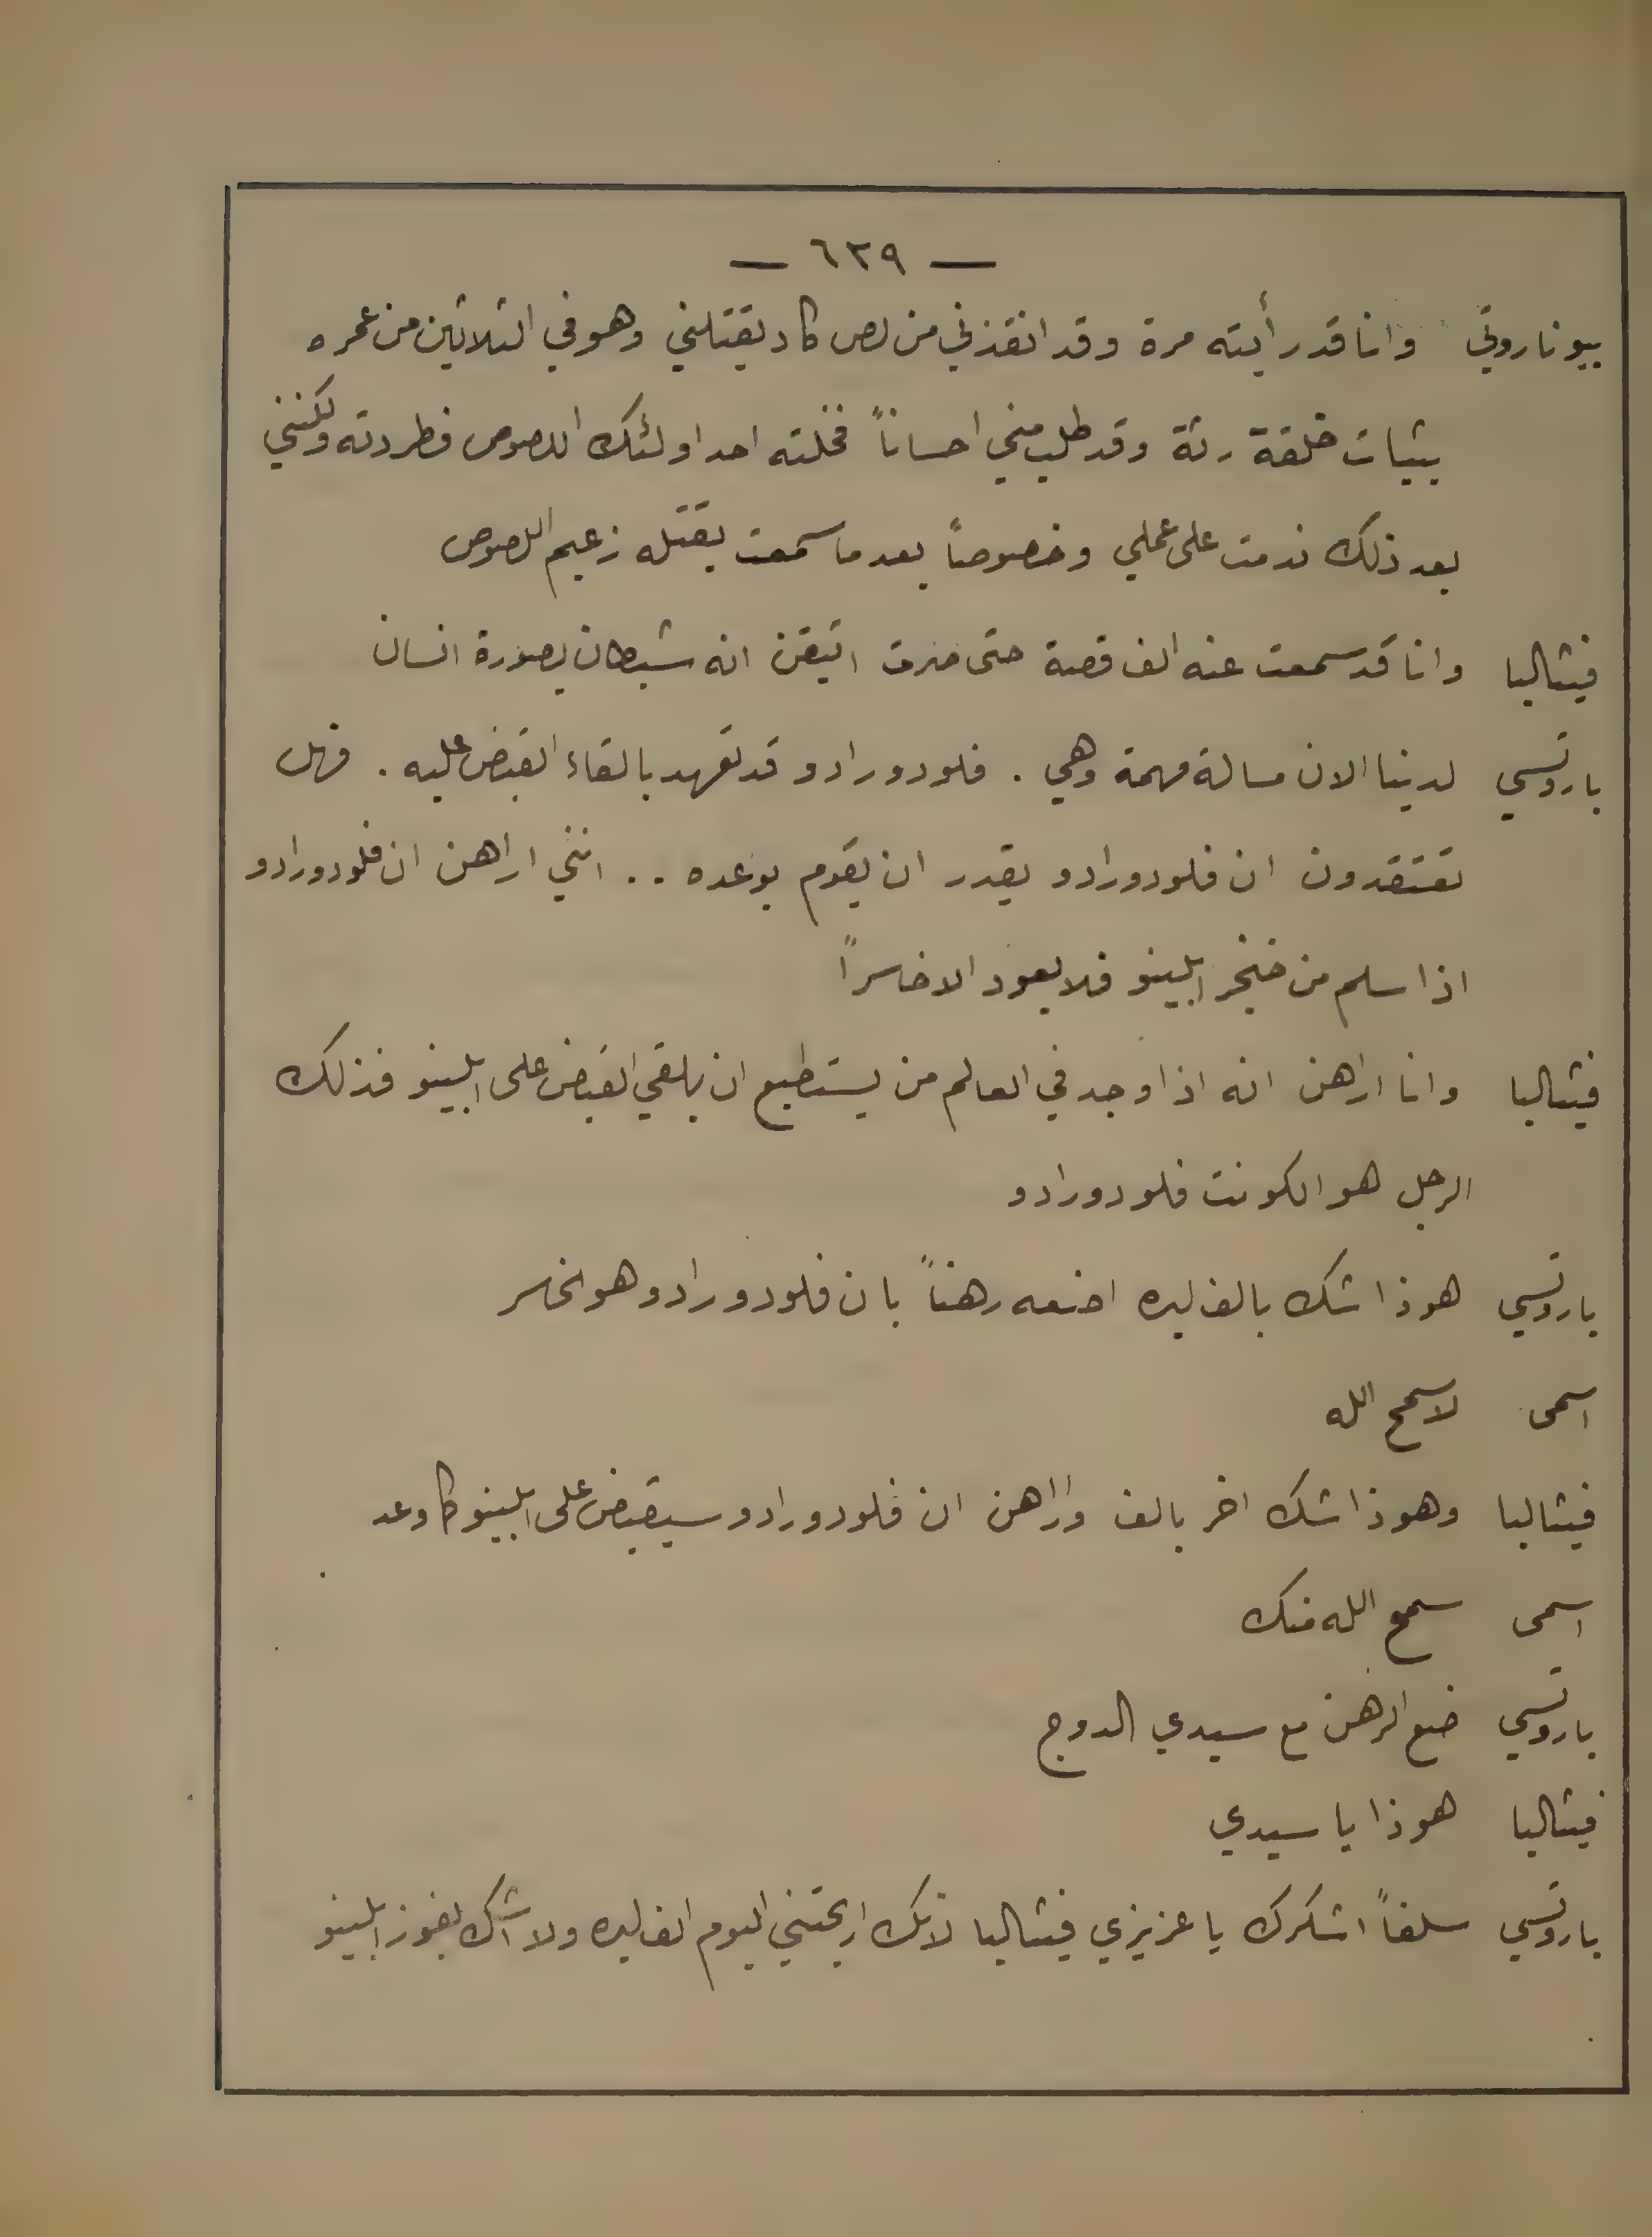 — ٦٢٩ —
بيوناروتي وانا قد رأيته مرة وقد انقذني من لص كاد يقتلني وهو في الثلاثين من عمره
بثياب خلقة رثة وقد طلب مني احساناً فخلته احد اولئك اللصوص فطردته ولكنني
بعد ذلك ندمت على عملي وخصوصاً بعد ما سمعت بقتله زعيم اللصوص
فيتاليا وانا قد سمعت عنه الف قصة حتى صرت اتيقن انه شيطان بصورة انسان
باروتسي لدينا الان مسالة مهمة وهي . فلودورادو قد تعهد بالقاء القبض عليه . فهل
تعتقدون ان فلودورادو يقدر ان يقوم بوعده .. انني اراهن ان فلودورادو
اذا سلم من خنجر ابلينو فلا يعود الا خاسراً
فيتاليا وانا اراهن انه اذا وجد في العالم من يستطيع ان يلقي القبض على ابلينو فذلك
الرجل هو الكونت فلودورادو
باروتسي هوذا شك بالف ليره اضعه رهناً بان فلودورادو هو الخاسر
اسمى لا سمح الله
فيتاليا وهوذا شك اخر بالف واراهن ان فلودورادو سيقبض على ابلينو كما وعد
اسمى سمع الله منك
باروتسي ضع الرهن مع سيدي الدوج
فيتاليا هوذا يا سيدي
باروتسي سلفاً اشكرك يا عزيزي فيتاليا لانك اربحتني اليوم الف ليره ولا اشك بفوز ابلينو